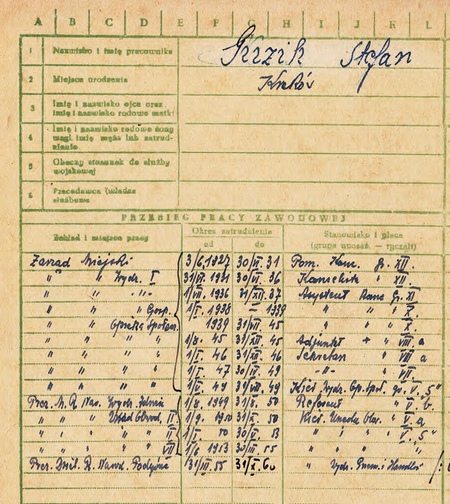 A B C D E F G H I J R L
1 Nazwisko i imię pracownika Stefan
2 Miejsce urodzenia Kraków
3 Imię i nazwisko ojca oraz
imię i nazwisko rodowe matki
4 Imię i nazwisko rodowe żony
wzgl. imię męża lub zatrud-
nienie
5 Obecny stosunek do służby
wojskowej
6 Pracodawca (władza
służbowa
PRZEBIEG PRACY ZAWODOWEJ
Zakład i miejsce pracy Okres zatrudnienia Stanowisko i płaca
od do (grupa uposaż. — ryczałt)
Zarząd Miejski 3/6.1927 30/VI. 31 Pom. Kanc. Gr. XII.
" " Wydz. I 1931 30/VI. 36 Kancelista " XII.
" " " 1/VII. 1936 31/XII. 37 Asystent Gr. XI
" " " Gosp. 1/I. 1938 — 1939 " " X
" " Opieka Społecz. 1939 31/VII. 45 " " X.
" " " 1/8. 45 31/XII. 45 Adjunkt " VIII a
" " " 1/I. 46 31/XII. 46 Sekretarz " VIII a
" " " 1/I. 47 30/IV. 49 " " VII.
" " " 49 31/VII. 49 Kier. Wydz. Op. Społ. gr. V. "5"
Prez. M. R. Nar. Wydz. 1/8. 1949 31/X. 50 Referent V. b.
" " Urząd Obwod. II 50 Kier. Urzędu Obw. V. a
" " " II 50 30/V. 53 " " " V. "5"
" " " VII 1/6 1953 30/III 55 " " "
Prez. Dziel. R. Narod. Podgórze 31/III. 55 31/X. 60 " Wydz. Przem. i Handlu